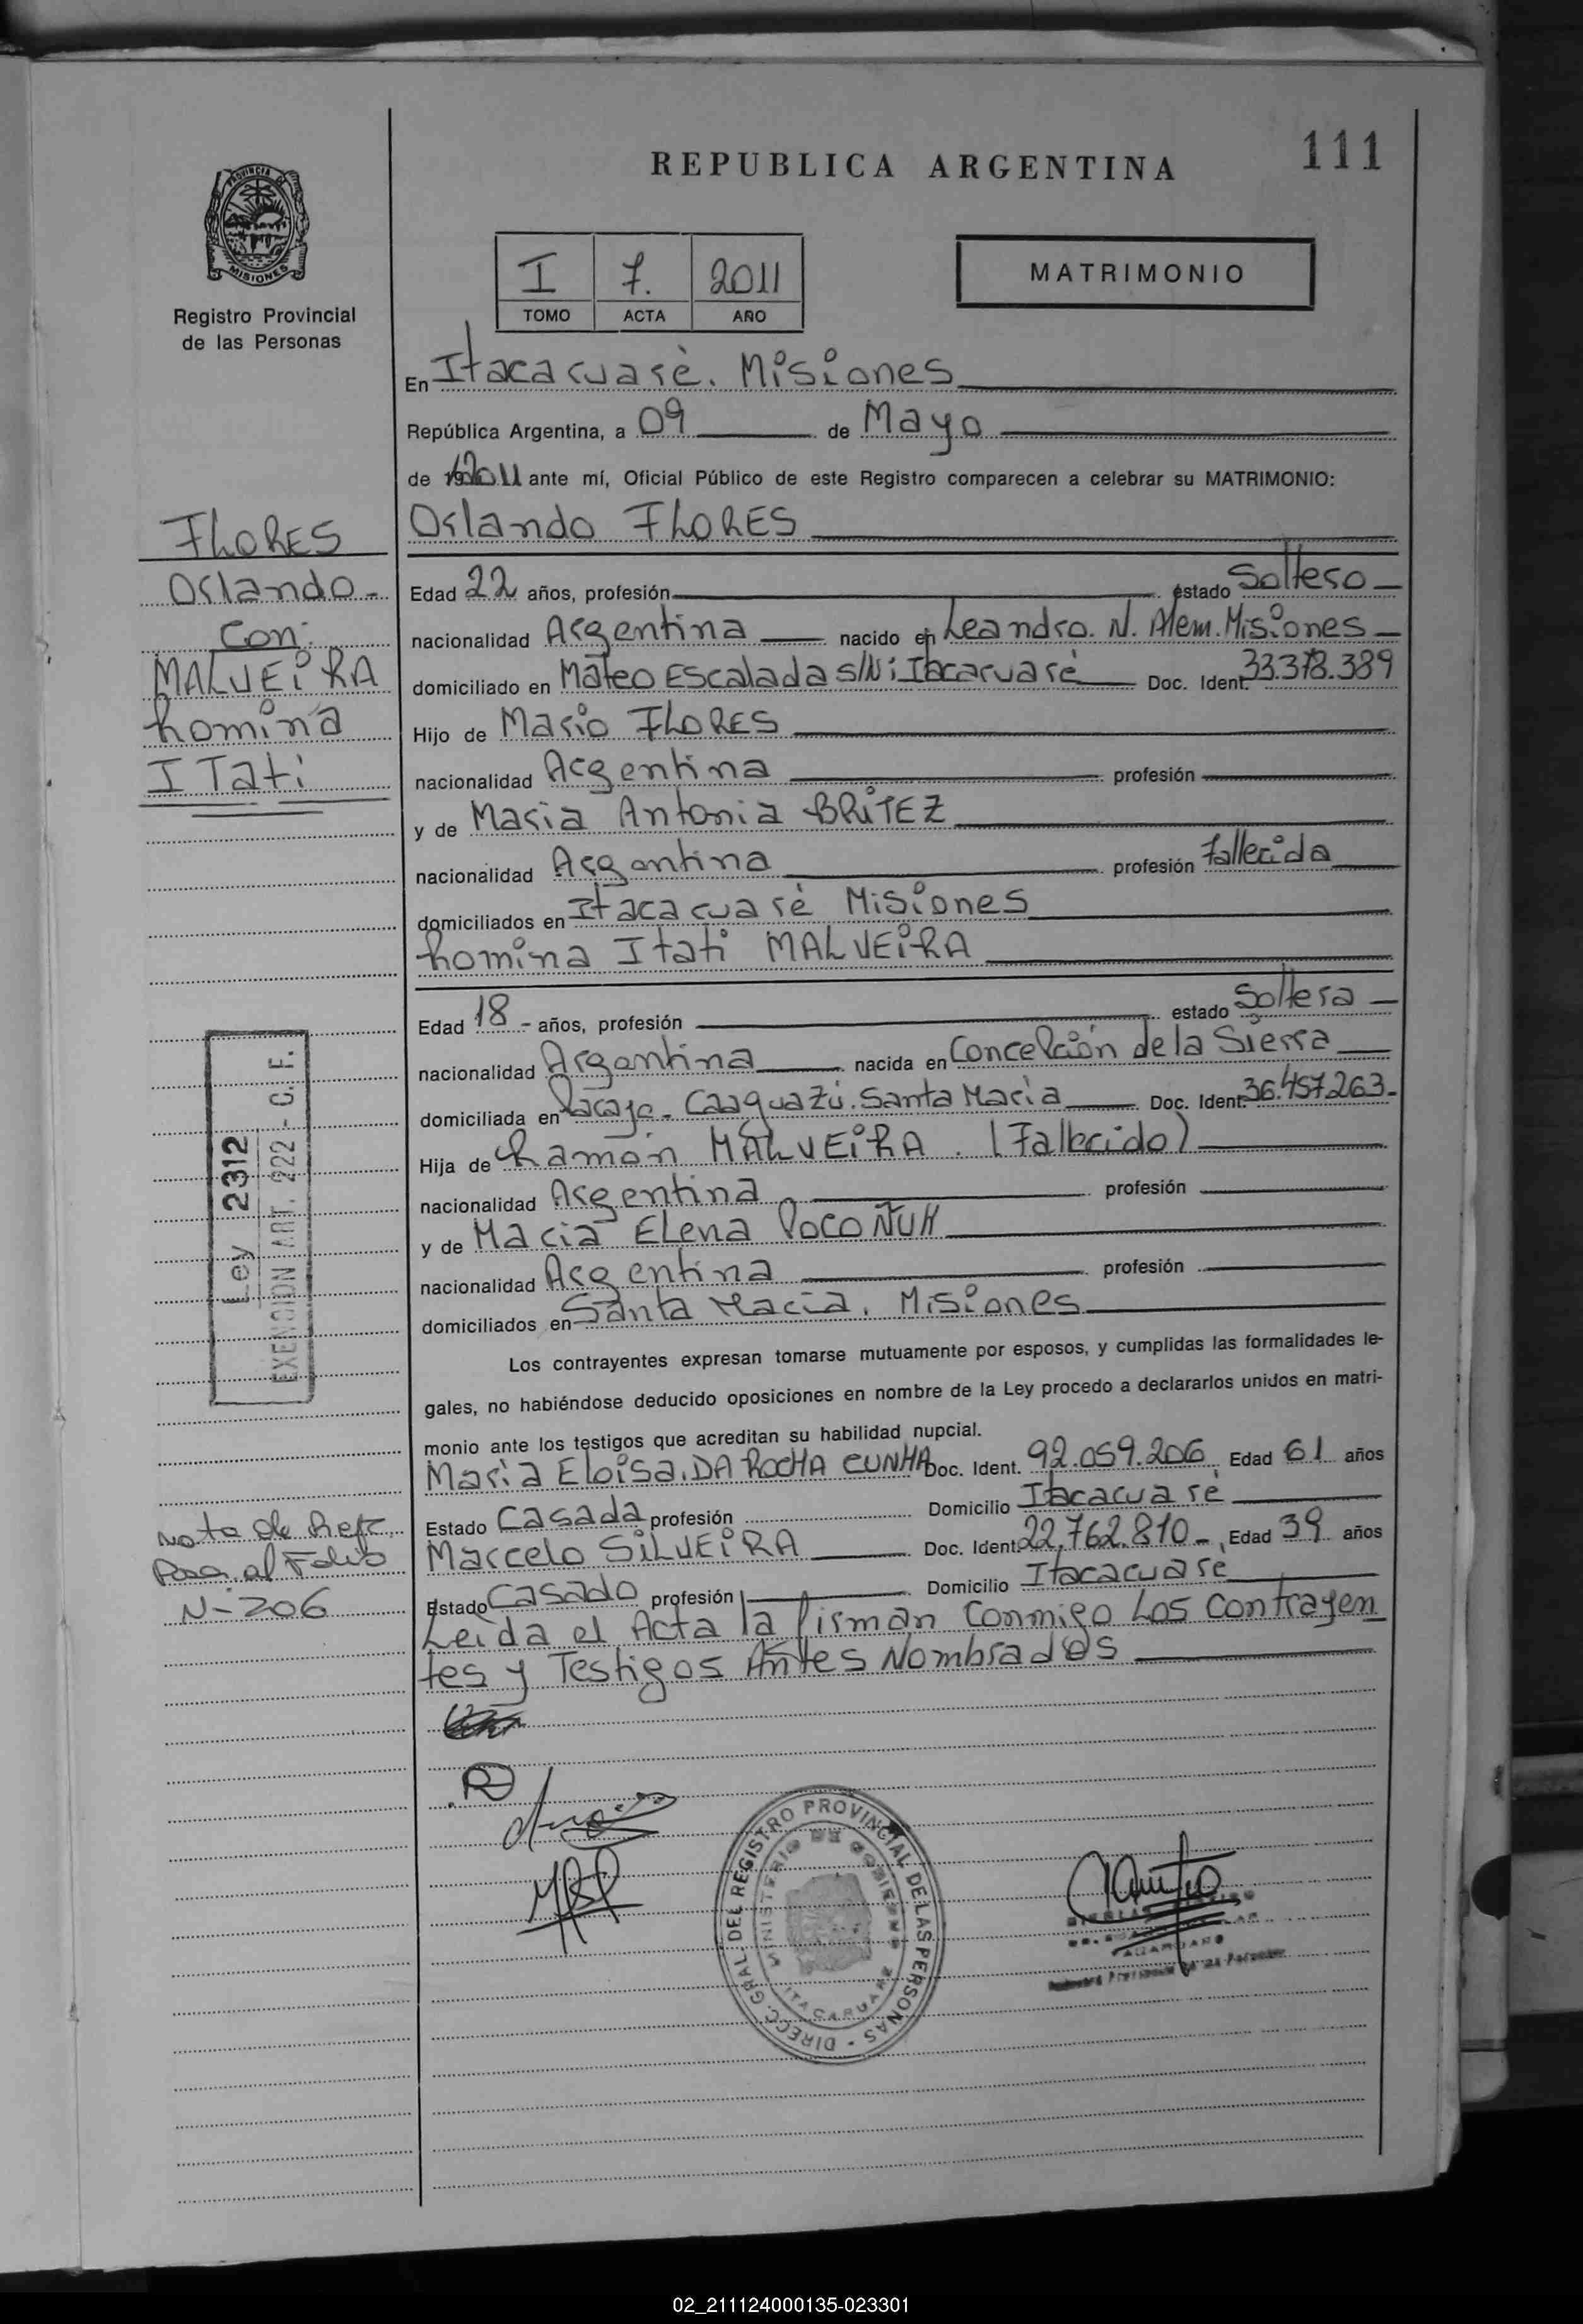 111
REPUBLICA ARGENTINA
PROVINCIA DE
MISIONES
Registro Provincial
de las Personas
I 7. 2011
TOMO ACTA AÑO
MATRIMONIO
En Itacaruaré. Misiones
República Argentina, a 09 de Mayo
de 2011 ante mí, Oficial Público de este Registro comparecen a celebrar su MATRIMONIO:
Orlando FLORES
FLORES
Orlando -
Con:
MALVEiRA
Romina
ITati
Edad 22 años, profesión estado Soltero
nacionalidad Argentina nacido en Leandro. N. Alem. Misiones
domiciliado en Mateo Escalada S/N: Itacaruaré Doc. Ident. 33.378.389
Hijo de Mario FLORES
nacionalidad Argentina profesión
y de Maria Antonia BRiTEZ
nacionalidad Argentina profesión Fallecida
domiciliados en Itacaruaré Misiones
Romina Itati MALVEiRA
Edad 18 - años, profesión estado Soltera
nacionalidad Argentina nacida en Concepción de la Sierra
domiciliada en Caaguazú. Santa Maria Doc. Ident. 36.457.263-
Hija de Ramón MALVEiRA. (Fallecido)
nacionalidad Argentina profesión
y de Maria Elena
nacionalidad Argentina profesión
domiciliados en Santa Maria. Misiones
Ley 2312
EXENCION ART. 222 - C. F.
Los contrayentes expresan tomarse mutuamente por esposos, y cumplidas las formalidades le-
gales, no habiéndose deducido oposiciones en nombre de la Ley procedo a declararlos unidos en matri-
monio ante los testigos que acreditan su habilidad nupcial.
Maria Eloisa. DA ROCHA CUNHA Doc. Ident. 92.059.206 Edad 61 años
Estado Casada profesión Domicilio Itacaruaré
Marcelo SiLVEiRA Doc. Ident. 22.762.810-, Edad 39 años
Estado Casado profesión Domicilio Itacaruaré
Leida el Acta la firman Conmigo Los Contrayen
tes y Testigos Antes Nombrados
Nota de Refe.
Pasa al Folio
N-206
DIRECC. GRAL. DEL REGISTRO PROVINCIAL DE LAS PERSONAS -
MINISTERIO DE GOBIERNO
ITACARUARE
02_211124000135-023301